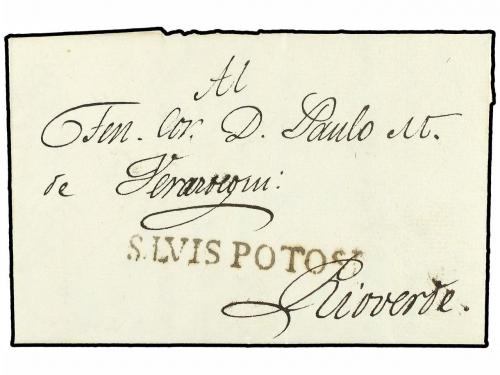 Al
Ten. Cor. D. Paulo M.
de Verastegui:
S.LVIS POTOSI
Rioverde.